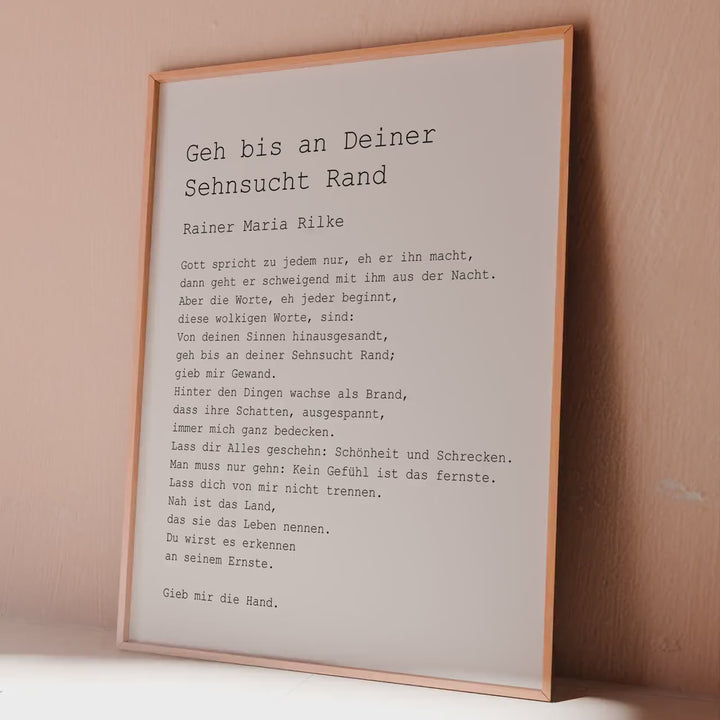 Geh bis an Deiner
Sehnsucht Rand
Rainer Maria Rilke
Gott spricht zu jedem nur, eh er ihn macht,
dann geht er schweigend mit ihm aus der Nacht.
Aber die Worte, eh jeder beginnt,
diese wolkigen Worte, sind:
Von deinen Sinnen hinausgesandt,
geh bis an deiner Sehnsucht Rand;
gieb mir Gewand.
Hinter den Dingen wachse als Brand,
dass ihre Schatten, ausgespannt,
immer mich ganz bedecken.
Lass dir Alles geschehn: Schönheit und Schrecken.
Man muss nur gehn: Kein Gefühl ist das fernste.
Lass dich von mir nicht trennen.
Nah ist das Land,
das sie das Leben nennen.
Du wirst es erkennen
an seinem Ernste.
Gieb mir die Hand.